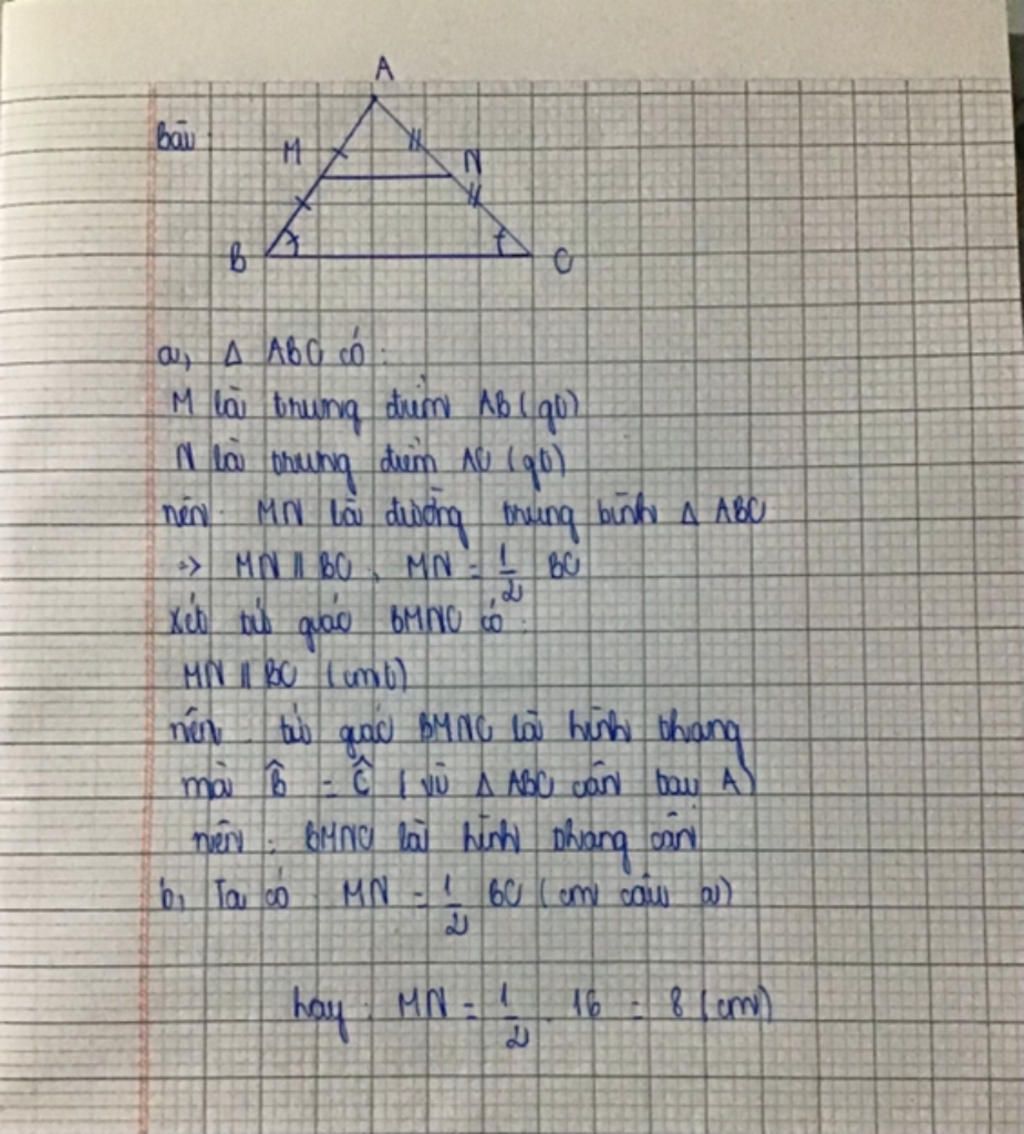 A
Bài
M
N
B
C
a, Δ ABC có:
M là trung điểm AB (gt)
N là trung điểm AC (gt)
nên: MN là đường trung bình Δ ABC
=> MN // BC, MN = 1/2 BC
Xét tứ giác BMNC có:
MN // BC (cmt)
nên: tứ giác BMNC là hình thang
mà B̂ = Ĉ (vì Δ ABC cân tại A)
nên: BMNC là hình thang cân
b, Ta có MN = 1/2 BC (cm câu a)
hay: MN = 1/2 . 16 = 8 (cm)